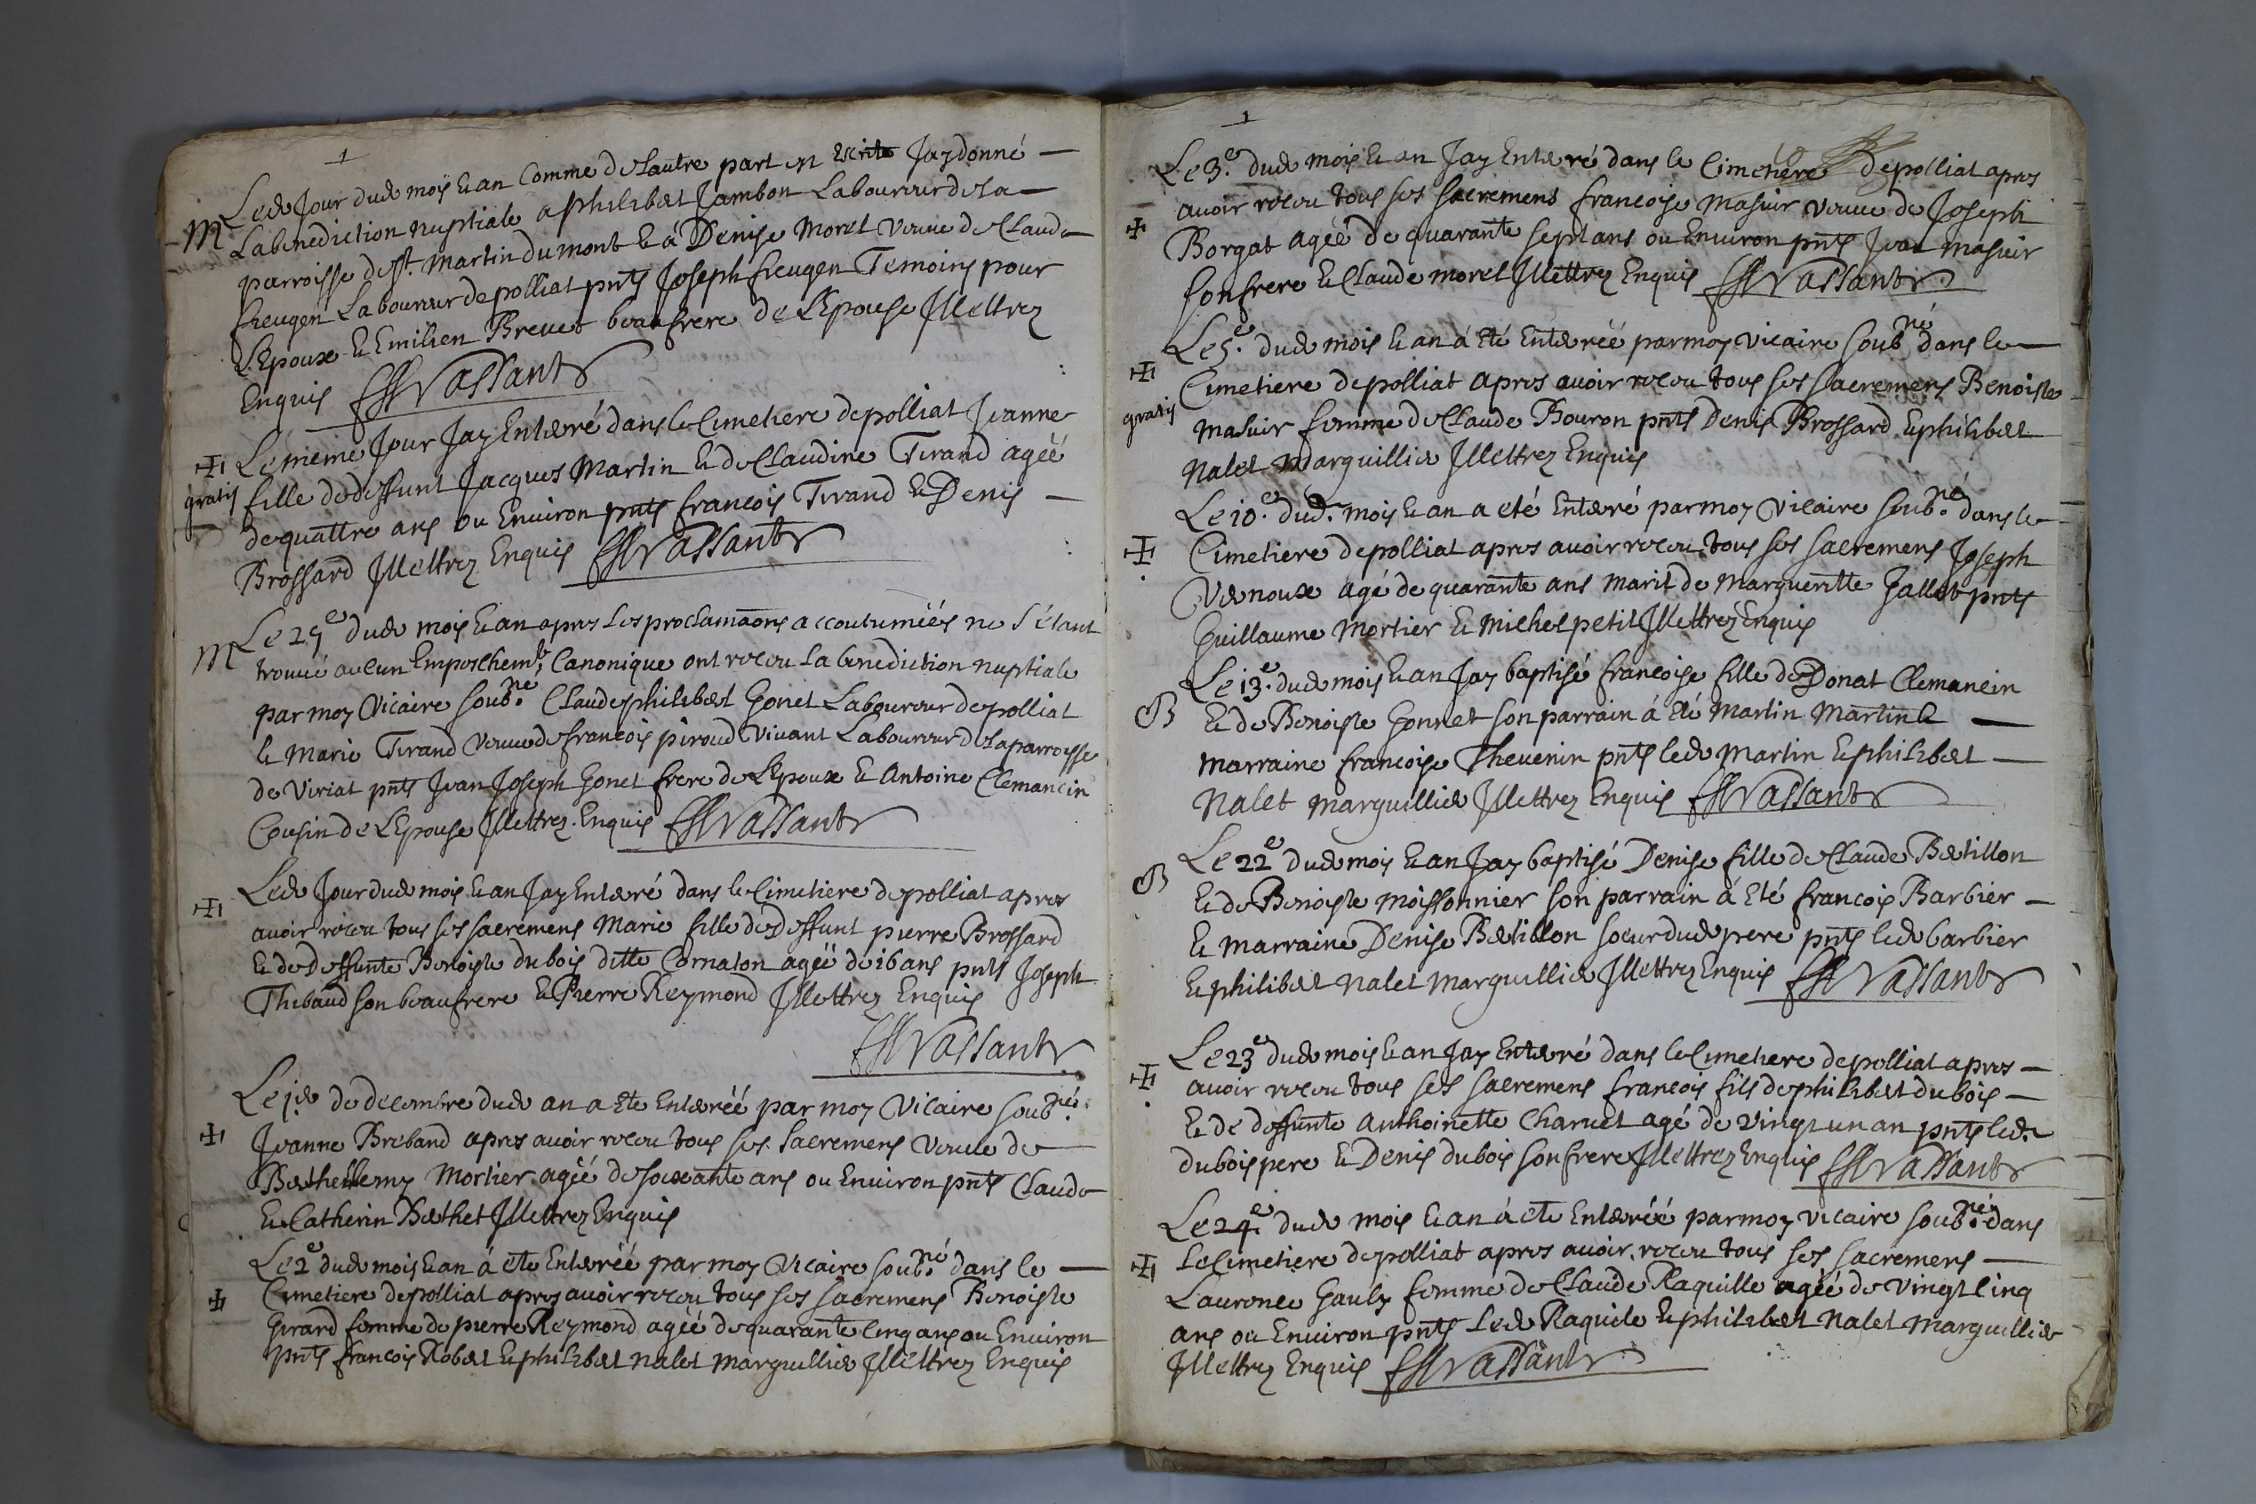 1
M Led. Jour dud. moÿs & an Comme de Lautre part en Escritte Jay donné
La benediction nuptiale a philibert Jambon Laboureur de la
parroisse de St. Martin du mont & á Denise Morel veuve de Claude
freugen Laboureur de polliat pnts Joseph freugen Temoins pour
L'Epoux & Emilien Brevet beaufrere de L'Epouse Illettrez
Enquis Vassant
✠ gratis Le meme Jour Jay Enterré dans le Cimetiere de polliat Jeanne
fille de deffunt Jacques Martin & de Claudine Tirand agéé
de quattre ans ou Environ pnts francois Tirand & Denis
Brossard Illettrez Enquis Vassant
M Le 25e dud. mois & an apres Les proclamaons accoutumëés ne s'étant
trouvé aucun Empeschemt. Canonique ont receu La benediction nuptiale
par moy Vicaire soub.né Claude philibert Gonet Laboureur de polliat
& Marie Tirand veuve de francois piroud Vivant Laboureur de la parroisse
de Viriat pnts Jean Joseph Gonet frere de L'Epoux & Antoine Clemancin
Cousin de L'Epouse Illettrez Enquis Vassant
✠ Led. Jour dud. mois & an Jay Enterré dans le Cimetiere de polliat apres
avoir receu tous ses sacremens Marie fille de Deffunt pierre Brossard
& de Deffunte Benoiste dubois ditte Cornaton agëé de 16 ans pnts Joseph
Thibaud son beaufrere & Pierre Reymond Illettrez Enquis
Vassant
Le 1er. de decembre dud. an a Eté Enterréé par moy Vicaire soub.né
✠ Jeanne Breband apres avoir receu tous ses Sacremens veuve de
Berthellemy Mortier agéé de soixante ans ou Environ pnts Claude
& Catherin Berthet Illettrez Enquis
Le 2e dud. mois & an á eté Enterréé par moy Vicaire soub.né dans le
✠ Cimetiere de polliat apres avoir receu tous ses sacremens Benoiste
Girard femme de pierre Reymond agéé de quarante cinq ans ou Environ
pnts francois Robert & philibert nalet marguillier Illettrez Enquis
1
Le 3e. dud. mois & an Jay Enterré dans le Cimetiere de polliat apres
✠ avoir receu tous ses sacremens francoise Masuir veuve de Joseph
Borgat agéé de quarante sept ans ou Environ pnts Jean masuir
son frere & Claude morel Illettrez Enquis Vassant
Le 5e. dud. mois & an á Eté Enterréé par moy Vicaire soub.né dans le
✠ gratis Cimetiere de polliat apres avoir receu tous ses sacremens Benoiste
masuir femme de Claude Bouron pnts Denis Brossard & philibert
Nalet marguillier Illettrez Enquis
Le 10e. dud. mois & an a eté Enterré par moy Vicaire soub.né dans le
✠ Cimetiere de polliat apres avoir receu tous ses sacremens Joseph
Vernoux agé de quarante ans Marit de Margueritte Gallet pnts
Guillaume Mortier & michel petit Illettrez Enquis
Le 13e. dud. mois & an Jay baptisé francoise fille de Donat Clemancin
B & de Benoiste Gonnet son parrain á eté Martin Martin &
marraine francoise Thevenin pnts led. Martin & philibert
Nalet marguillier Illettrez Enquis Vassant
Le 22e dud. mois & an Jay baptisé Denise fille de Claude Bertillon
B & de Benoiste moissonnier son parrain á Eté francois Barbier
& marraine Denise Bertillon soeur dud. pere pnts led. barbier
& philibert nalet marguillier Illettrez Enquis Vassant
Le 23e dud. mois & an Jay Enterré dans le Cimetiere de polliat apres
✠ avoir receu tous ses sacremens francois fils de philibert dubois
& de deffunte Anthoinette Charvet agé de vingt un an pnts led.
dubois pere & Denis dubois son frere Illettrez Enquis Vassant
Le 24e. dud. mois & an á eté Enterréé par moy vicaire soub.né dans
✠ Le Cimetiere de polliat apres avoir receu tous ses sacremens
Laurence Gauly femme de Claude Raquille agéé de vingt cinq
ans ou Environ pnts Led. Raquile & philibert Nalet marguillier
Illettrez Enquis Vassant